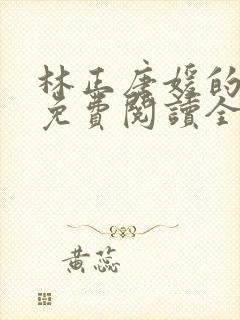 林正唐媛的
免費閱讀全
黃蕊